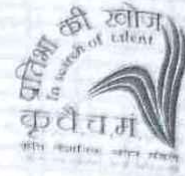 प्रतिभा की खोज
In search of talent
कृ वै च मं